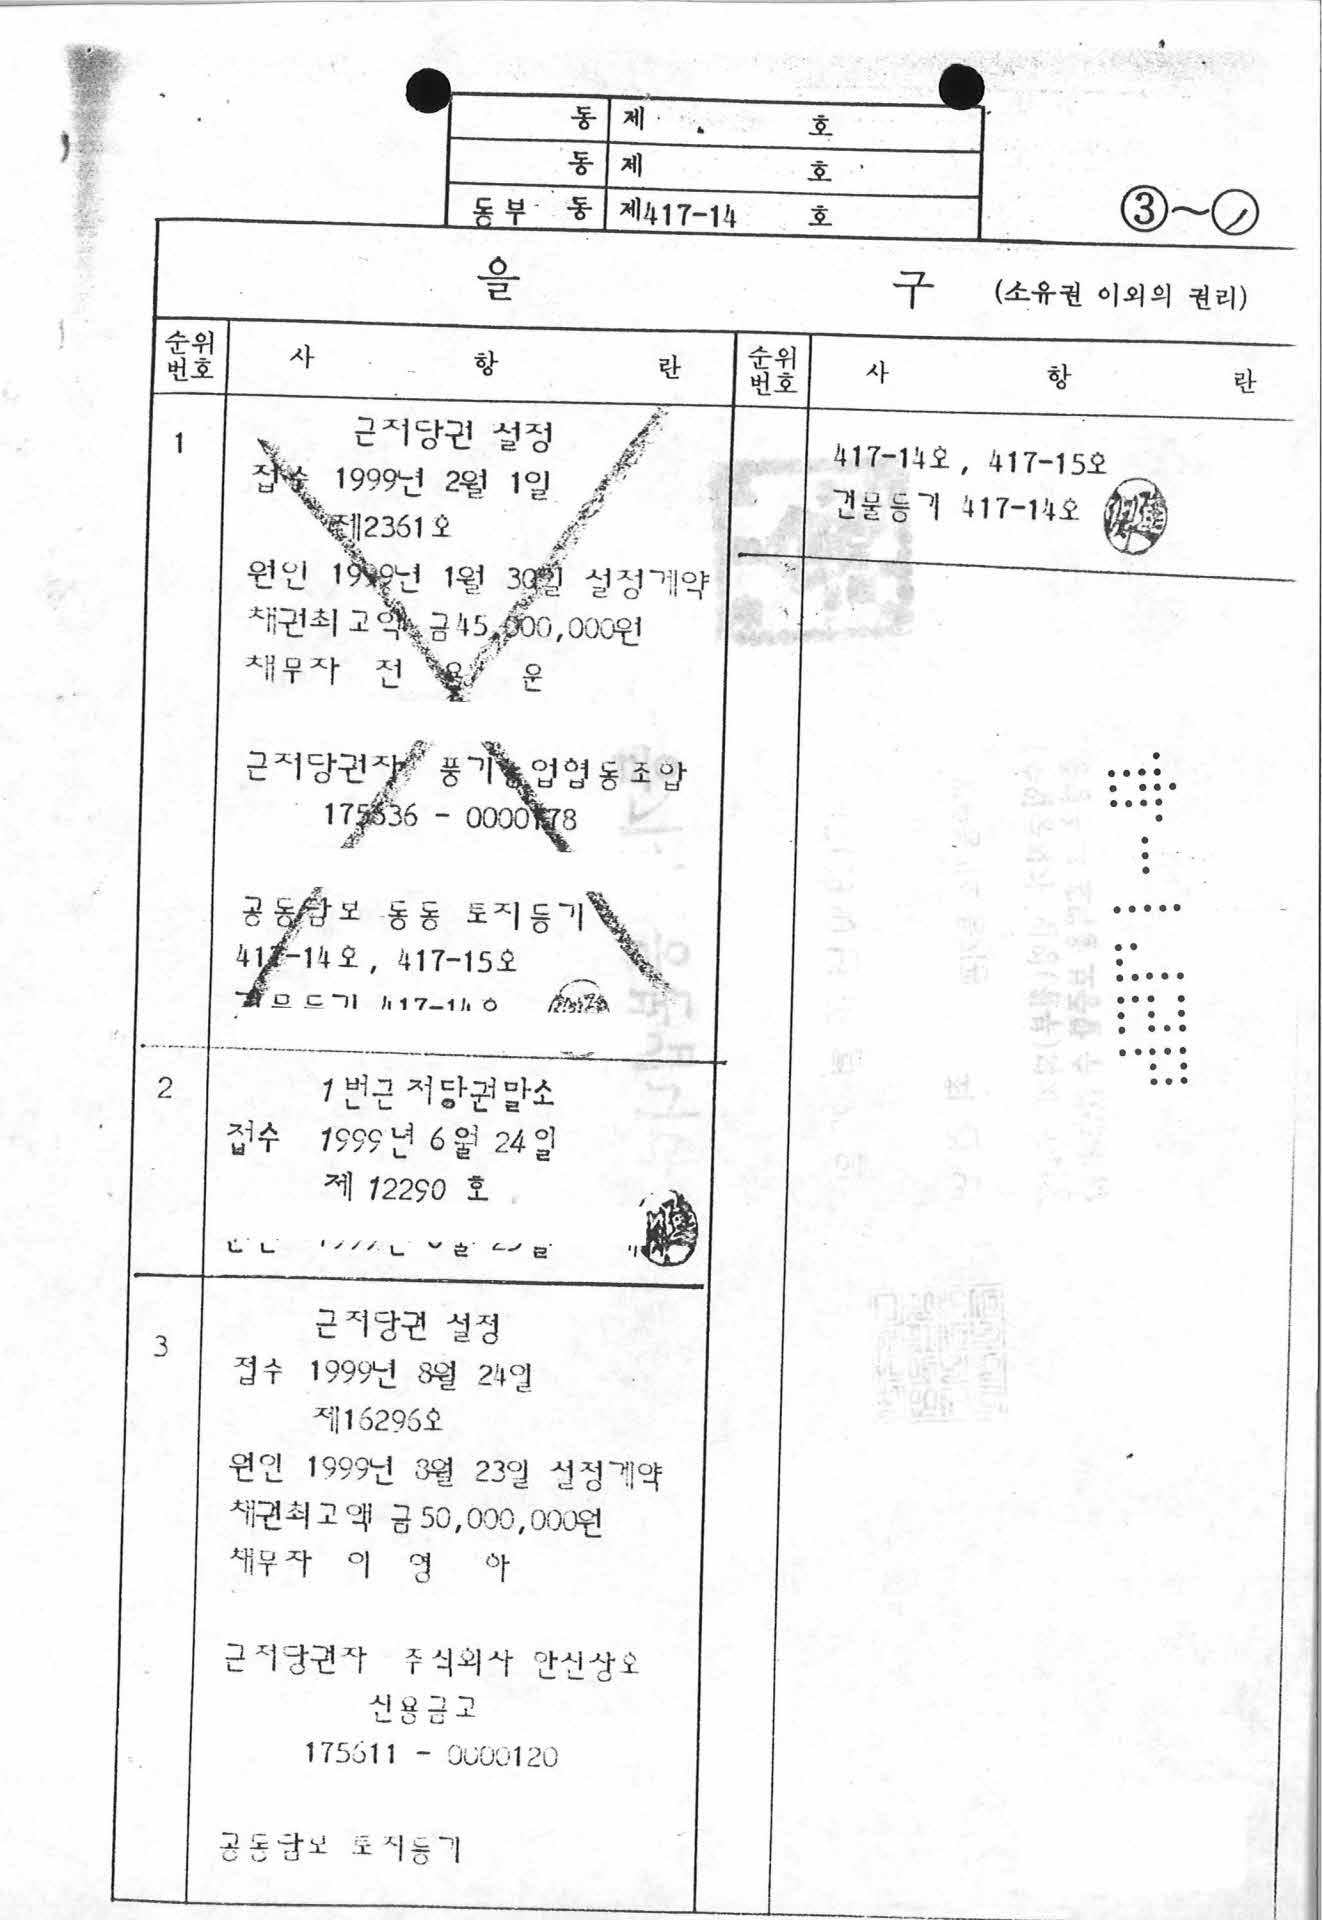 동 제 호
동 제 호
동부 동 제417-14 호
③~
을 구 (소유권 이외의 권리)
순위번호 사 항 란
1
근저당권 설정
접수 1999년 2월 1일
제2361호
원인 1999년 1월 30일 설정계약
채권최고액 금45,000,000원
채무자 전 용 운
근저당권자 풍기농업협동조합
175636 - 0000178
공동담보 동동 토지등기
417-14호, 417-15호
건물등기 417-14호
2
1번근저당권말소
접수 1999년 6월 24일
제 12290 호
3
근저당권 설정
접수 1999년 8월 24일
제16296호
원인 1999년 8월 23일 설정계약
채권최고액 금50,000,000원
채무자 이 영 아
근저당권자 주식회사 안신상호
신용금고
175611 - 0000120
공동담보 토지등기
순위번호 사 항 란
417-14호, 417-15호
건물등기 417-14호